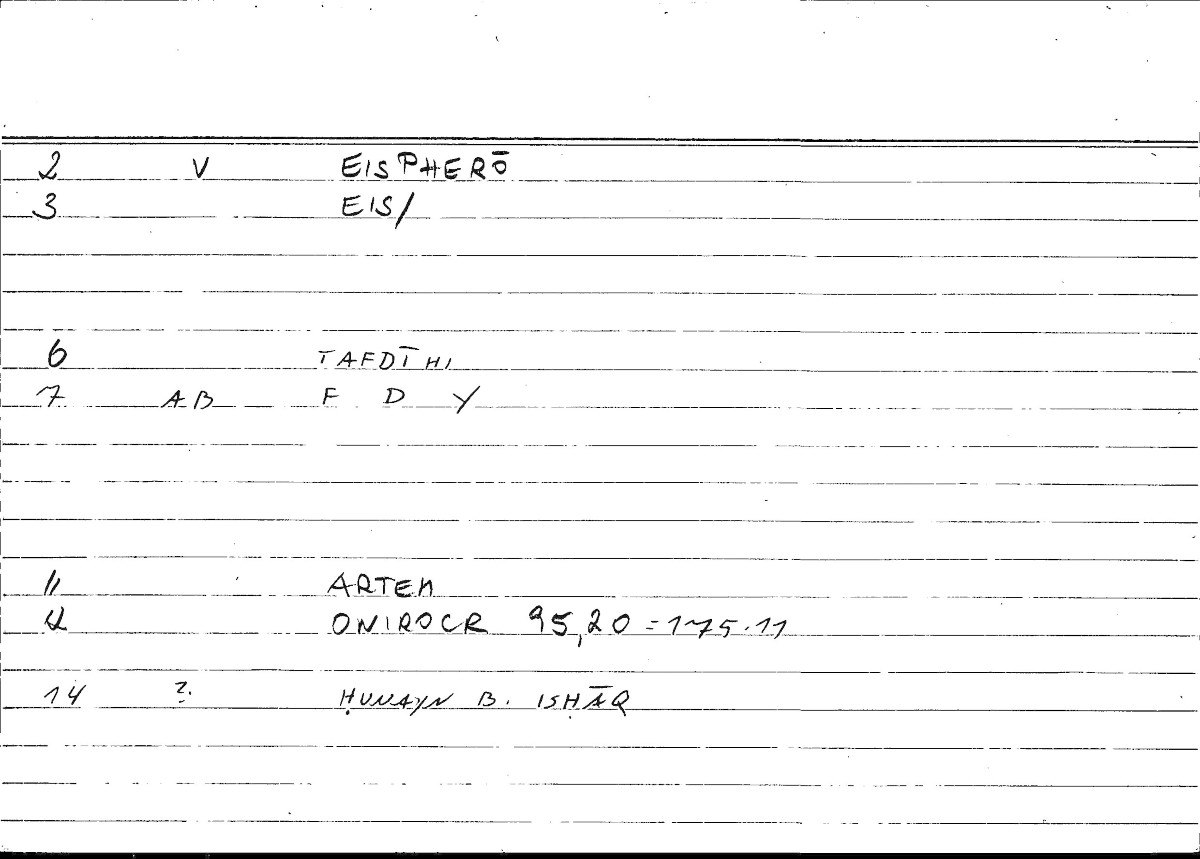 2 V EISPHERŌ
3 EIS/
6 TAFDĪHI
7 AB F D Y
11 ARTEM
12 ONIROCR 95,20 = 175.11
14 ?. ḤUNAYN B. ISḤĀQ